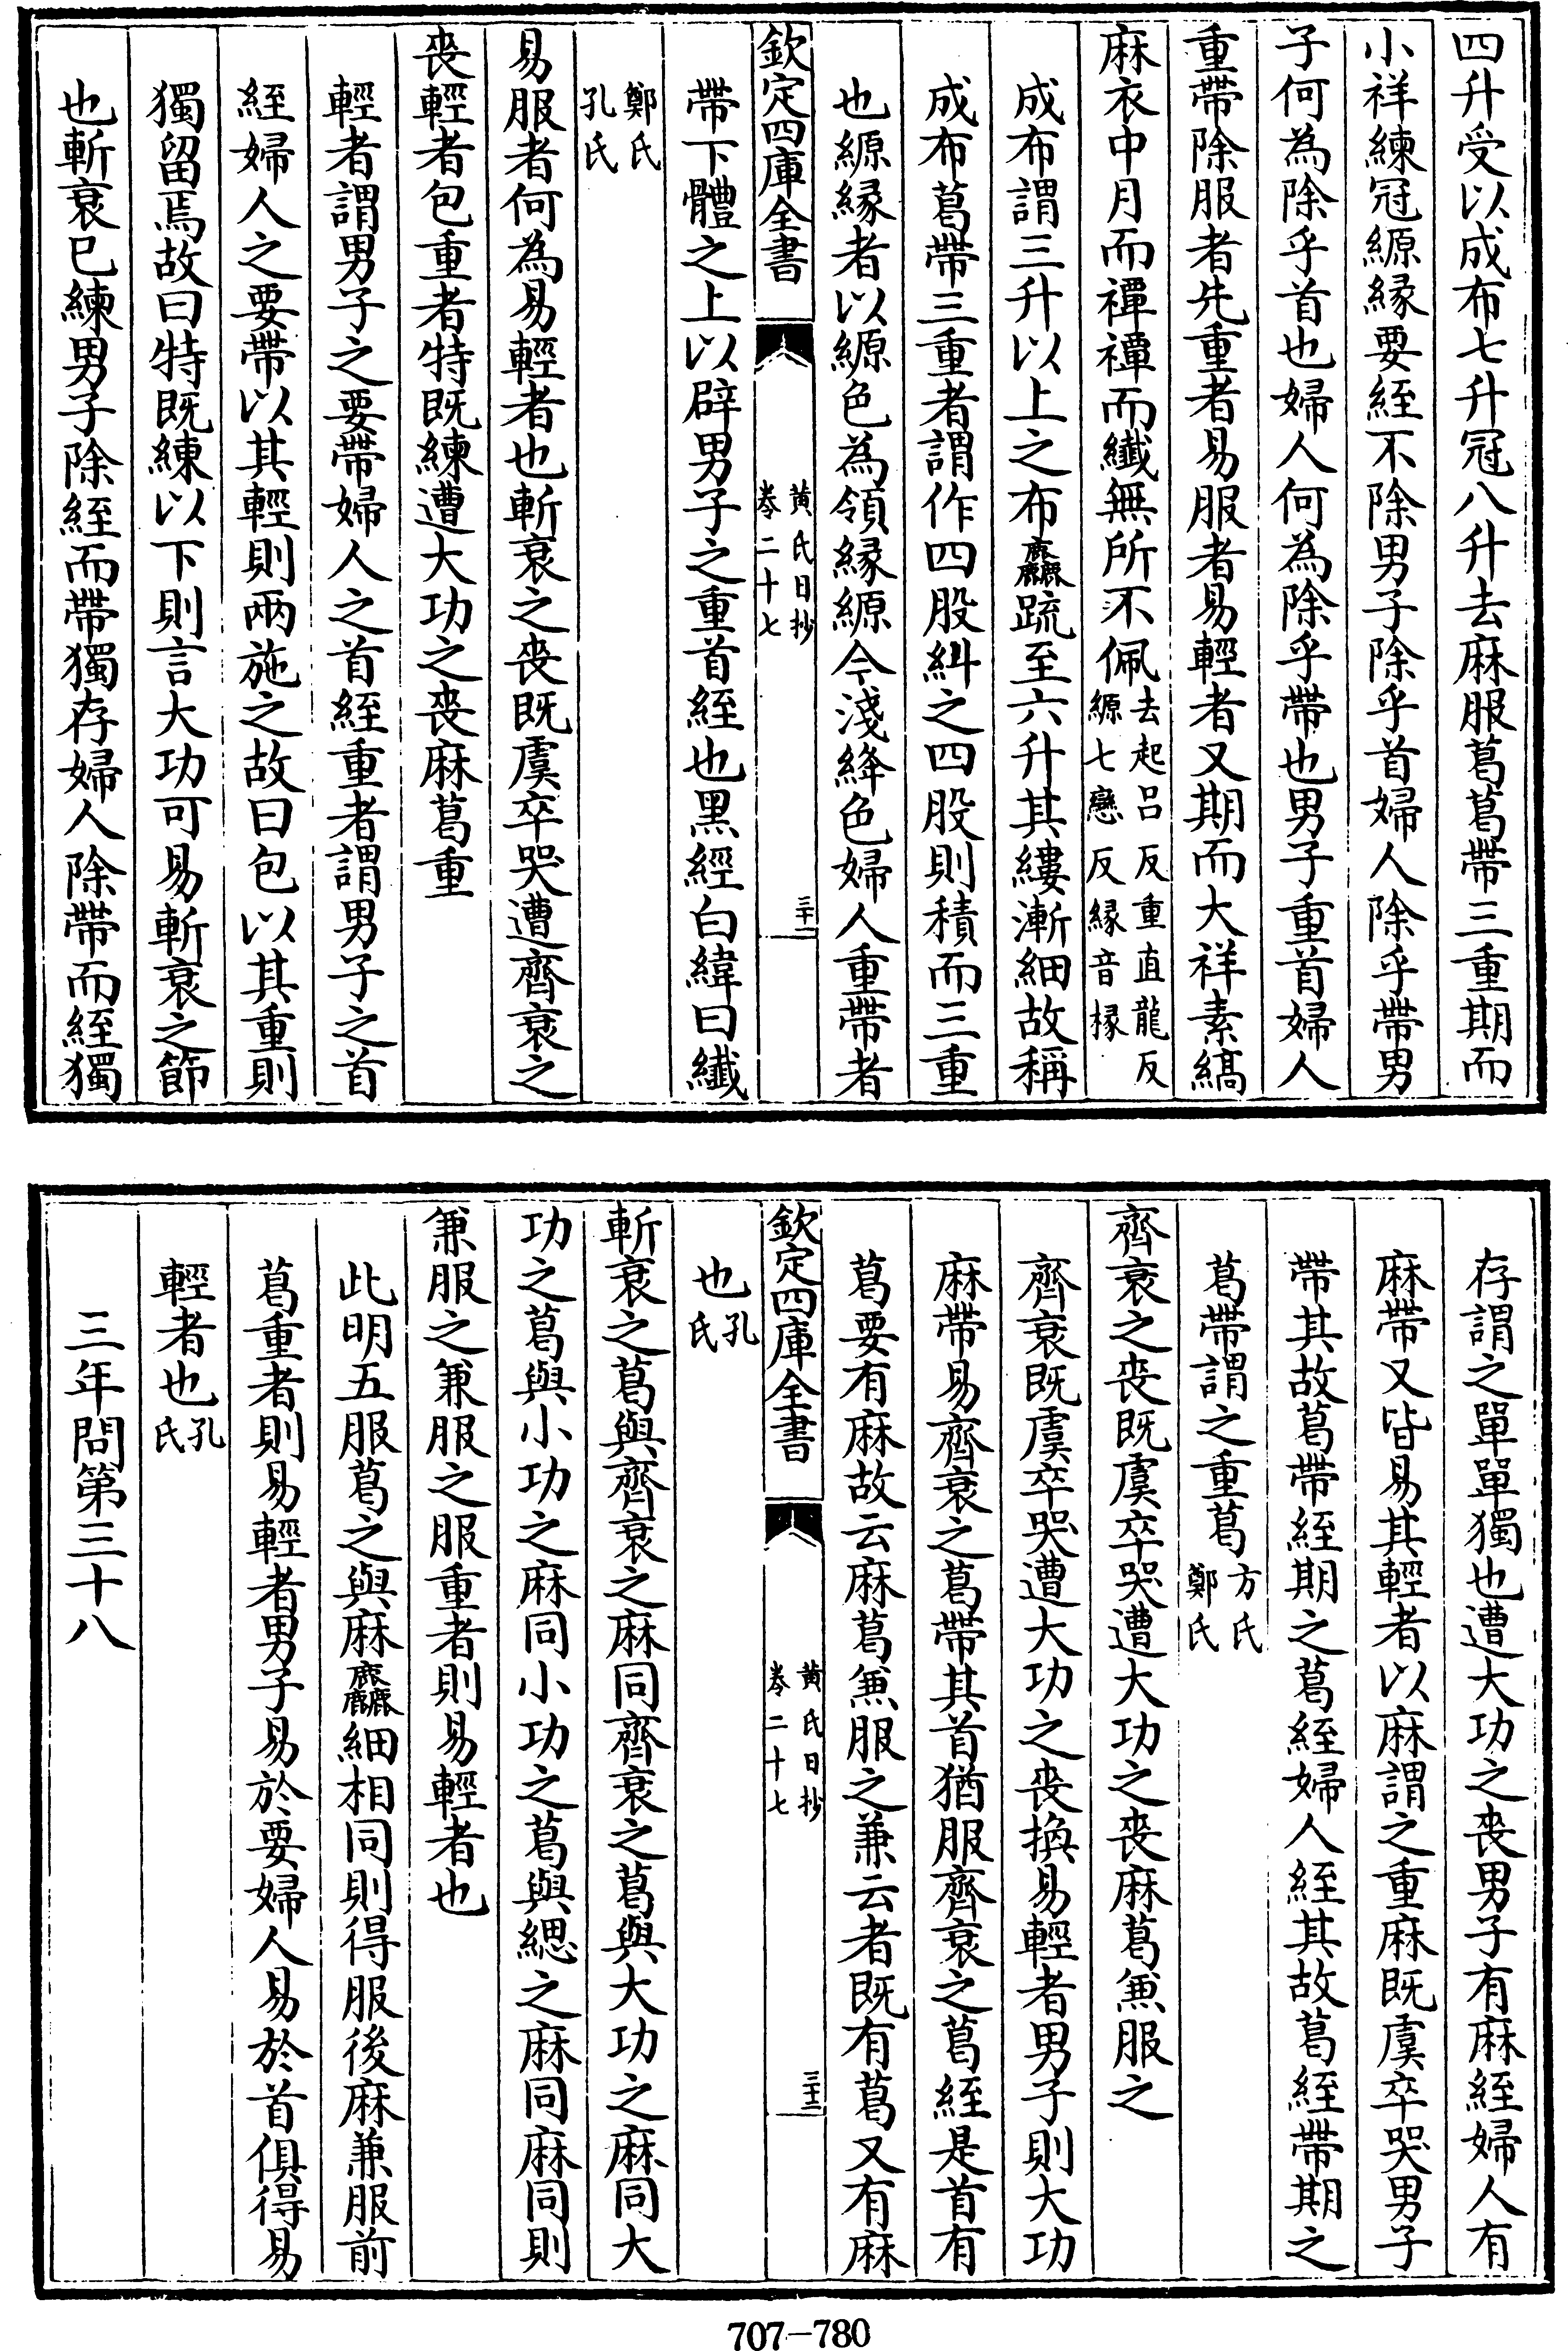 四升受以成布七升冠八升去麻服葛葛帶三重期而
小祥練冠縓縁要絰不除男子除乎首婦人除乎帶男
子何為除乎首也婦人何為除乎帶也男子重首婦人
重帶除服者先重者易服者易輕者又期而大祥素縞
麻衣中月而禫禫而纖無所不佩去起呂反重直龍反縓七戀反縁音椽
成布謂三升以上之布麤疏至六升其縷漸細故稱
成布葛帶三重者謂作四股糾之四股則積而三重
也縓縁者以縓色為領縁縓今淺絳色婦人重帶者
欽定四庫全書
黄氏日抄
卷二十七
三十一
帶下體之上以辟男子之重首絰也黑經白緯曰纖
鄭氏孔氏
易服者何為易輕者也斬衰之喪既虞卒哭遭齊衰之
喪輕者包重者特既練遭大功之喪麻葛重
輕者謂男子之要帶婦人之首絰重者謂男子之首
絰婦人之要帶以其輕則兩施之故曰包以其重則
獨留焉故曰特既練以下則言大功可易斬衰之節
也斬衰已練男子除絰而帶獨存婦人除帶而絰獨
存謂之單單獨也遭大功之喪男子有麻絰婦人有
麻帶又皆易其輕者以麻謂之重麻既虞卒哭男子
帶其故葛帶絰期之葛絰婦人絰其故葛絰帶期之
葛帶謂之重葛方氏鄭氏
齊衰之喪既虞卒哭遭大功之喪麻葛兼服之
齊衰既虞卒哭遭大功之喪換易輕者男子則大功
麻帶易齊衰之葛帶其首猶服齊衰之葛絰是首有
葛要有麻故云麻葛兼服之兼云者既有葛又有麻
欽定四庫全書
黄氏日抄
卷二十七
三十二
也孔氏
斬衰之葛與齊衰之麻同齊衰之葛與大功之麻同大
功之葛與小功之麻同小功之葛與緦之麻同麻同則
兼服之兼服之服重者則易輕者也
此明五服葛之與麻麤細相同則得服後麻兼服前
葛重者則易輕者男子易於要婦人易於首俱得易
輕者也孔氏
三年問第三十八
707-780